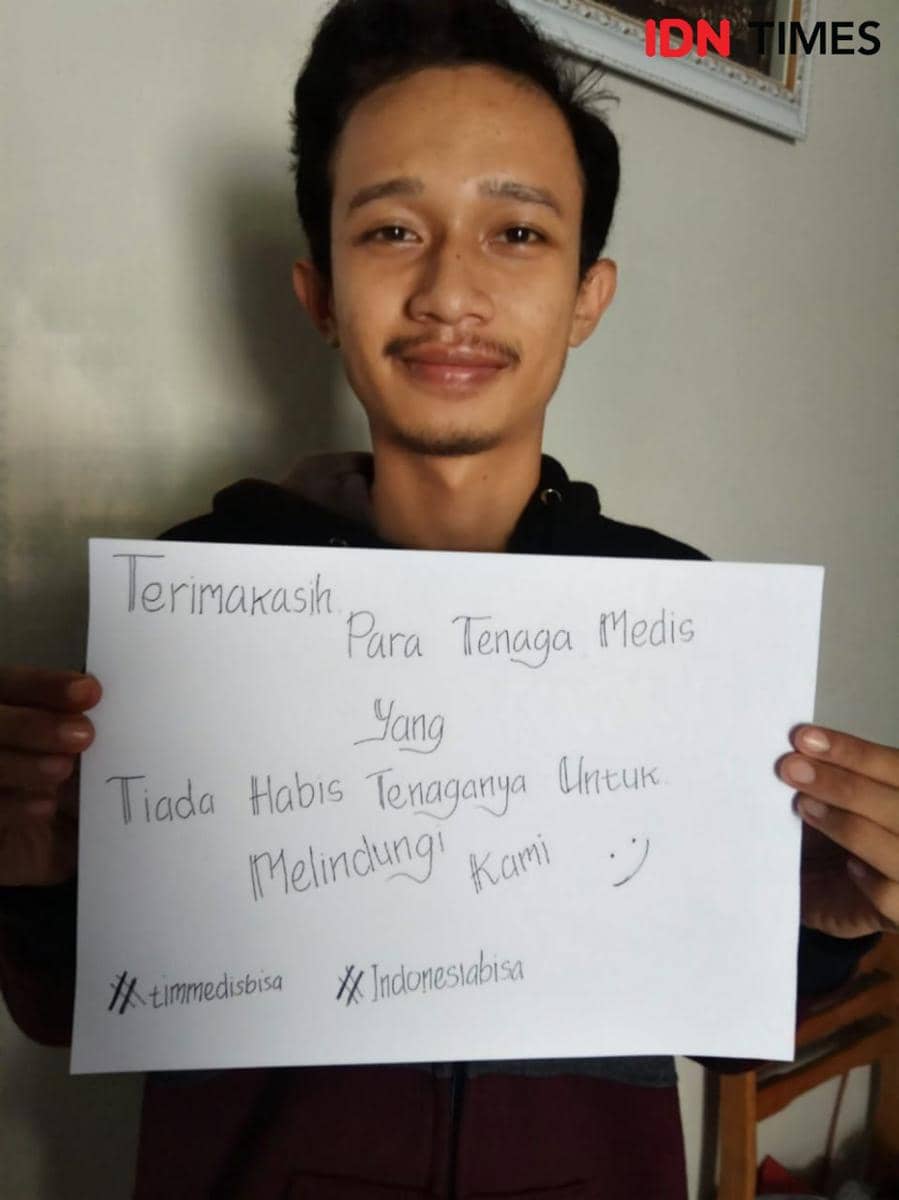 IDN TIMES
Terimakasih
Para Tenaga Medis
Yang
Tiada Habis Tenaganya Untuk
Melindungi Kami :)
#timmedisbisa #Indonesiabisa